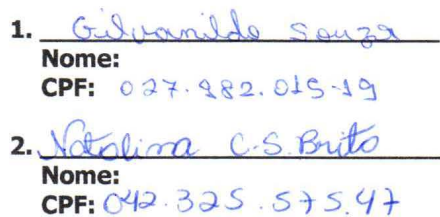 1. Gilvanildo Souza
Nome:
CPF: 027.982.015-19
2. Natalina C.S. Brito
Nome:
CPF: 042.325.575.47